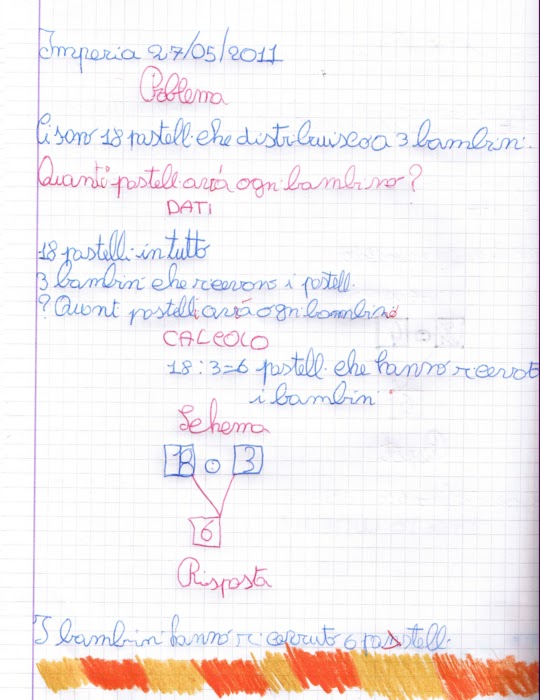 Imperia 27/05/2011
Problema
Ci sono 18 pastelli che distribuisco a 3 bambini.
Quanti pastelli avrá ogni bambino?
DATI
18 pastelli in tutto
3 bambini che ricevono i pastelli.
? Quanti pastelli avrá ogni bambino
CALCOLO
18:3=6 pastelli che hanno ricevuto
i bambini
Schema
18 : 3
6
Risposta
I bambini hanno ricevuto 6 pastelli.